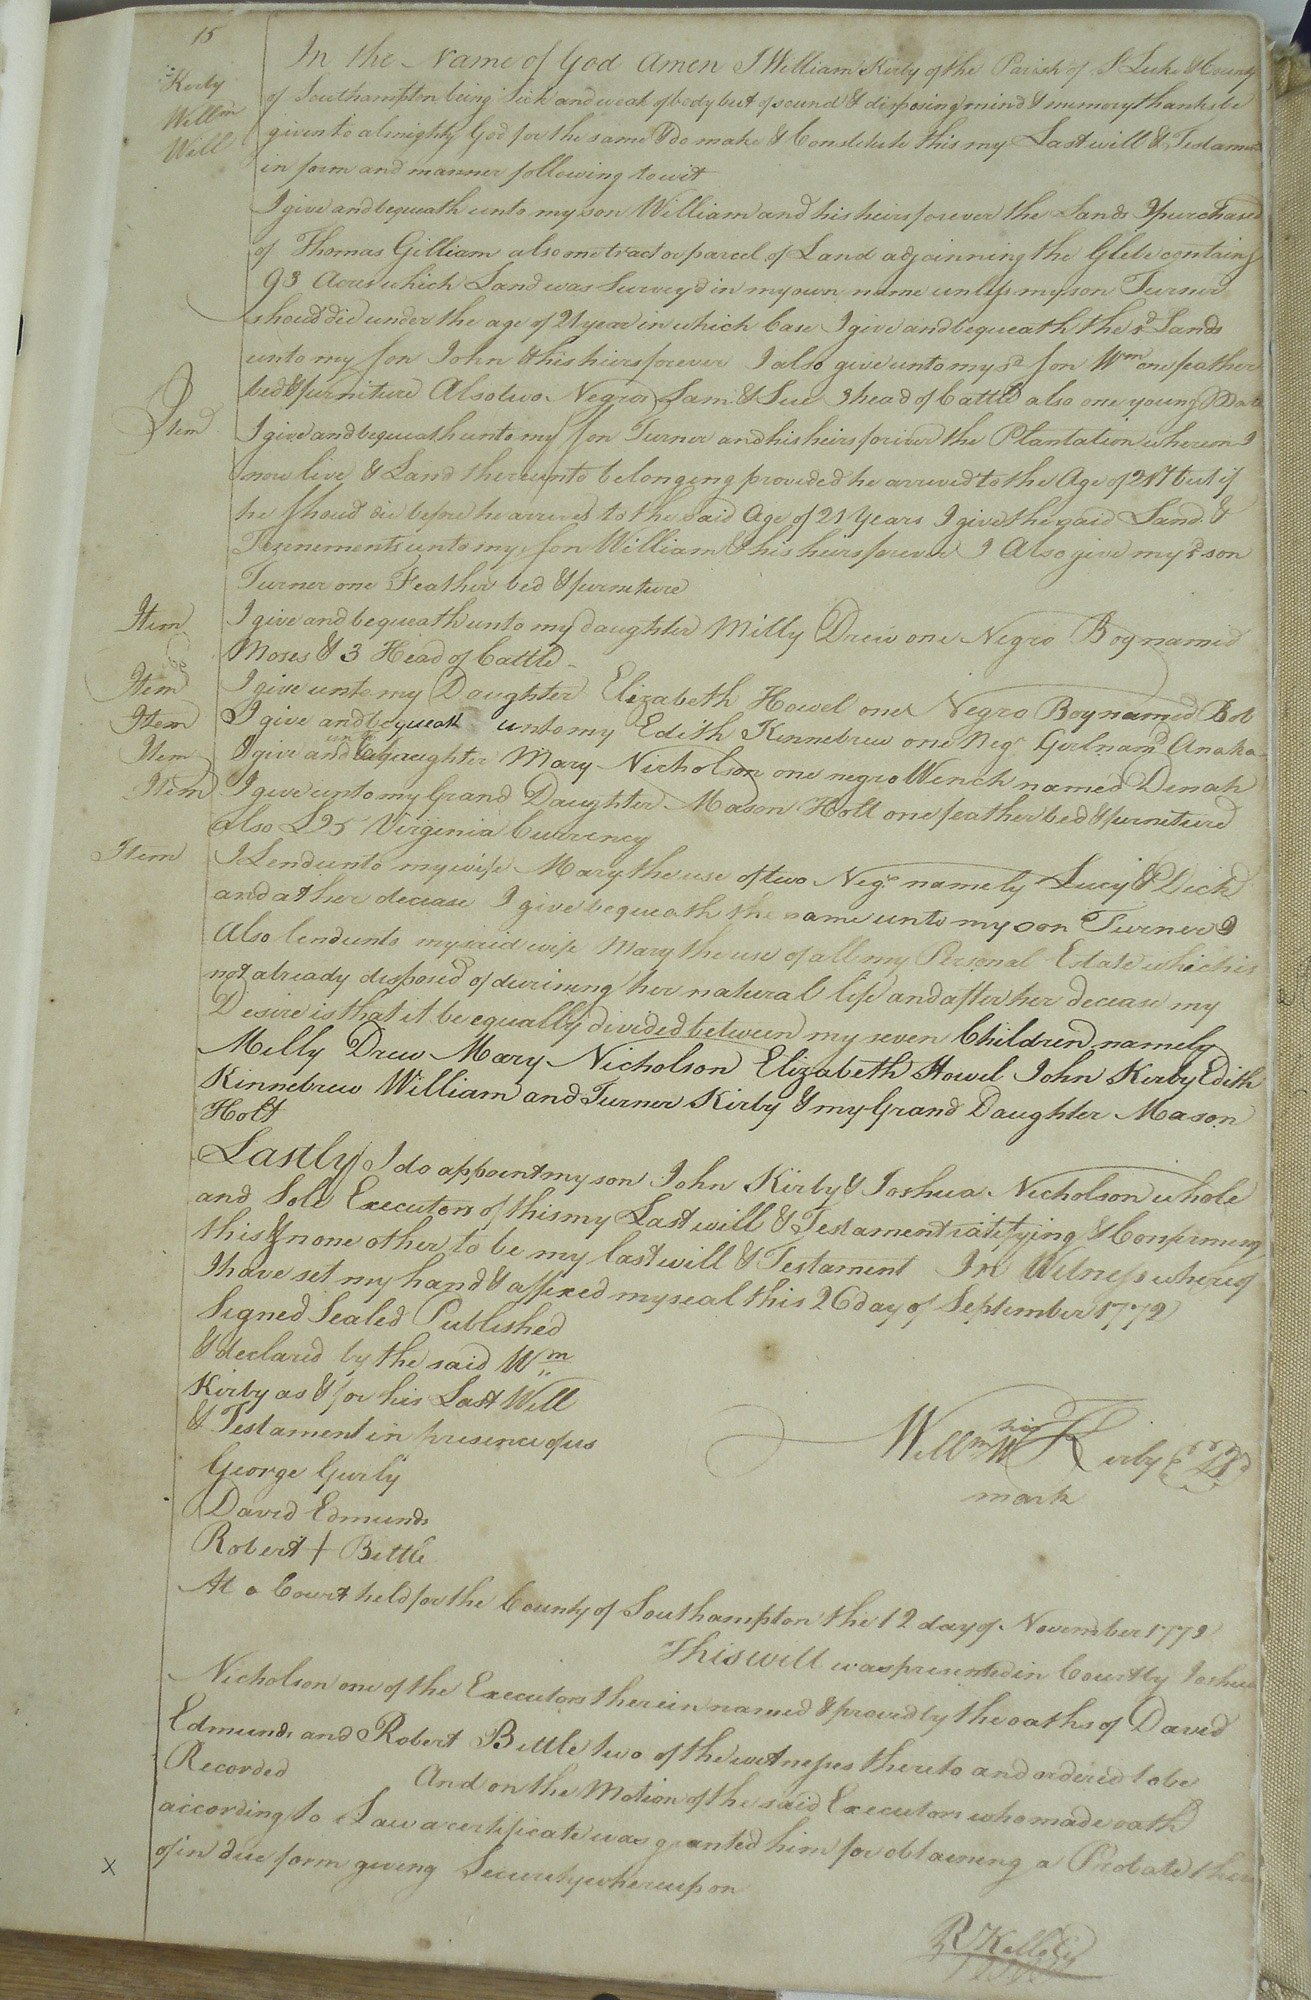 15
Kerby
Willm
Will
In the Name of God Amen I William Kirby of the Parish of St Luke & County
of Southampton being Sick and weak of body but of sound & disposing mind & memory thanks be
given to almighty God for the same & do make & Constitute this my Last will & Testament
in form and manner following to wit
I give and bequeath unto my son William and his heirs forever the Lands I purchased
of Thomas Gilliam also one tract or parcel of Land adjoinning the Glebe containg
93 Acres which Land was Survey'd in my own name unless my son Turner
should die under the age of 21 year in which Case I give and bequeath the sd Lands
unto my son John & his heirs forever I also give unto my sd son Wm one feather
bed & furniture Also two Negros Sam & Sue 3 head of Cattle also one young Mare
Item
I give and bequeath unto my son Turner and his heirs forever the Plantation whereon I
now live & Land thereunto belonging provided he arrived to the Age of 21 but if
he should die before he arrives to the said Age of 21 Years I give the said Land &
Tennements unto my son William & his heirs forever I Also give my sd son
Turner one Feather bed & furniture
Item I give and bequeath unto my daughter Milly Drew one Negro Boy named
Moses & 3 Head of Cattle
Item I give unto my Daughter Elizabeth Howel one Negro Boy named Bob
Item I give and bequeath unto my Edith Kinnebrew one Negr Girl namd Anaka
Item I give and daughter Mary Nicholson one negro Wench named Dinah
Item I give unto my Grand Daughter Mason Holt one feather bed & furniture
also £25 Virginia Currency
Item I Lend unto my wife Mary the use of two Negs namely Lucy & Dick
and at her decease I give bequeath the same unto my son Turner I
Also lend unto my said wife Mary the use of all my Personal Estate which is
not already disposed of durining her natural life and after her decease my
Desire is that it be equally divided between my seven Children namely
Milly Drew Mary Nicholson Elizabeth Howel John Kerby Edith
Kinnebrew William and Turner Kirby & my Grand Daughter Mason
Holt
Lastly I do appoint my son John Kirby & Joshua Nicholson whole
and Sole Executors of this my Last will & Testament ratifying & Confirming
this & none other to be my last will & Testament In Witness whereof
I have set my hand & affixed my seal this 26 day of September 1772
Signed Sealed Published
& declared by the said Wm
Kirby as & for his Last Will
& Testament in presence of us
George Gurly
David Edmunds
Robert + Bittle
his
Willm W Kirby LS
mark
At a Court held for the County of Southampton the 12 day of November 1772
This will was presented in Court by Joshua
Nicholson one of the Executors therein named & proved by the oaths of David
Edmunds and Robert Bittle two of the witnesses thereto and ordered to be
Recorded And on the Motion of the said Executors who made oath
according to Law a certificate was granted him for obtaining a Probate there
of in due form giving Security whereupon
X
R Kello